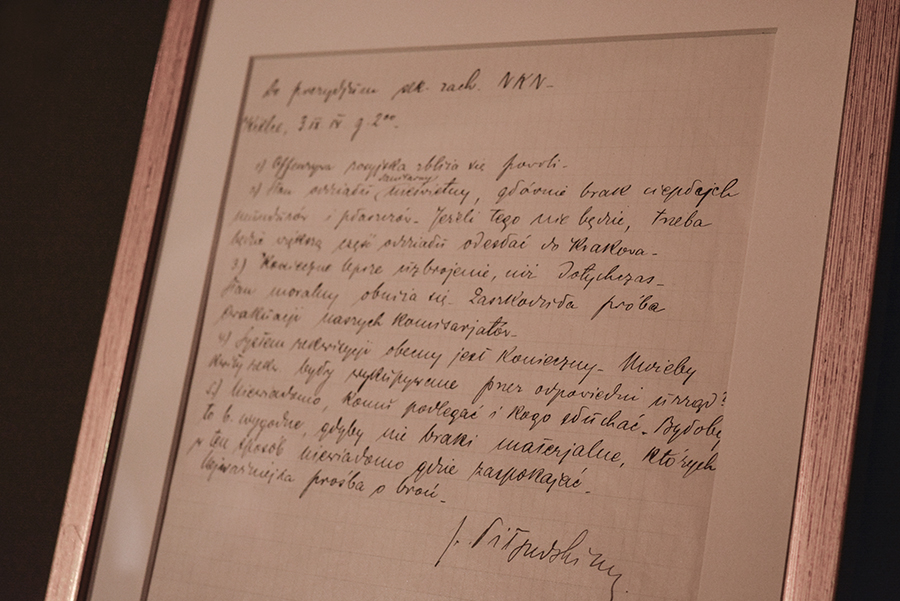 Do prezydjum sek. zach. NKN-
Kielce, 3 IX g. 2⁰⁰-
1) Offenzywa rosyjska zbliża się powoli-
2) Stan oddziału sanitarny nieświetny, głównie brak ciepłych
mundurów i płaszczów- Jeżeli tego nie będzie, trzeba
będzie większą część oddziału odesłać do Krakowa-
3) Konieczne lepsze uzbrojenie, niż dotychczas-
Stan moralny obniża się- Zaszkodziła próba
ewakuacji naszych komisarjatów-
4) System rekwizycji obecny jest konieczny- Mieliby
kwity rekw. były wykupywane przez odpowiedni urząd?
5) Niewiadomo, komu podlegać i kogo słuchać- Byłoby
to b. wygodne, gdyby nie braki materjalne, których
w ten sposób niewiadomo gdzie zaspokajać-
Najważniejsza prośba o broń-
J. Piłsudski